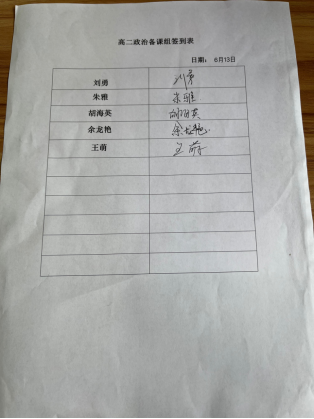 高二政治备课组签到表
日期： 6月13日
刘勇 刘勇
朱雅 朱雅
胡海英 胡海英
余龙艳 余龙艳
王萌 王萌